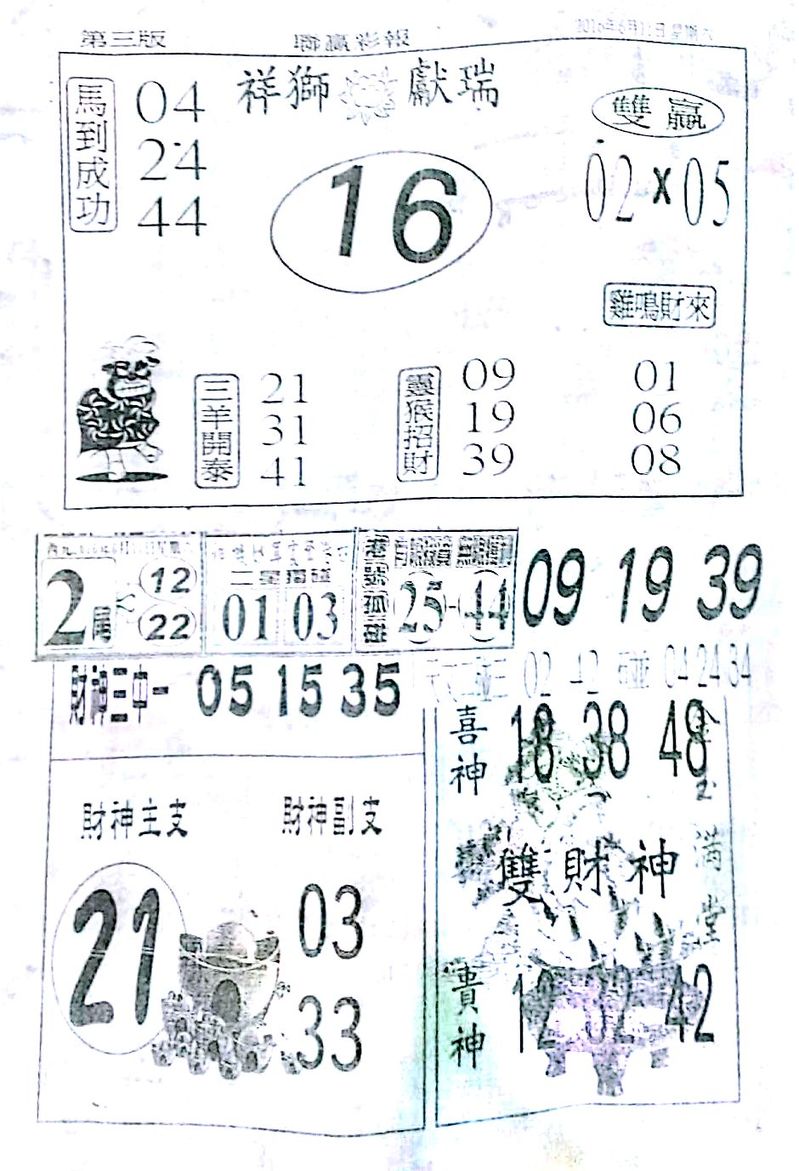 第三版
祥獅 獻瑞
馬到成功
04
24
44
16
雙贏
02 x 05
雞鳴財來
01
06
08
三羊開泰
21
31
41
靈猴招財
09
19
39
2尾 < 12 22
01 03
25 - 44
09 19 39
財神三中一 05 15 35
02 42 04 24 34
喜神 18 38 48
財神主支
21
財神副支
03
33
雙財神
滿堂
貴神 12 32 42